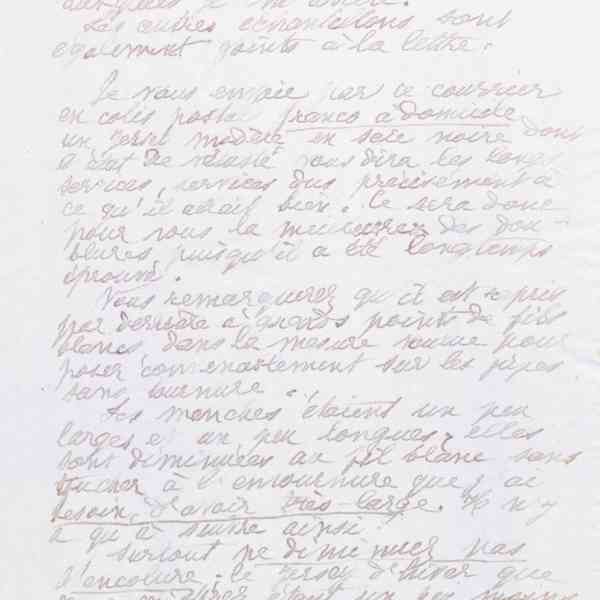 Les autres échantillons sont
également joints à la lettre.
Je vous envoie par ce courrier
en colis postal franco à domicile
un Jersey modèle en soie noire dont
l'état de vétusté vous dira les longs
services, services dus précisément à
ce qu'il était bien. Ce sera donc
pour vous la meilleure des dou-
blures puisqu'il a été longtemps
éprouvé.
Vous remarquerez qu'il est repris
par derrière à grands points de fils
blancs dans la mesure voulue pour
poser convenablement sur les jupes
sans tournure.
Les manches étaient un peu
larges et un peu longues, elles
sont diminuées au fil blanc sans
toucher à l'emmanchure que j'ai
besoin d'avoir très large. Il n'y
a qu'à suivre ainsi.
Surtout ne diminuez pas
l'encolure; le jersey d'hiver que
un peu moins